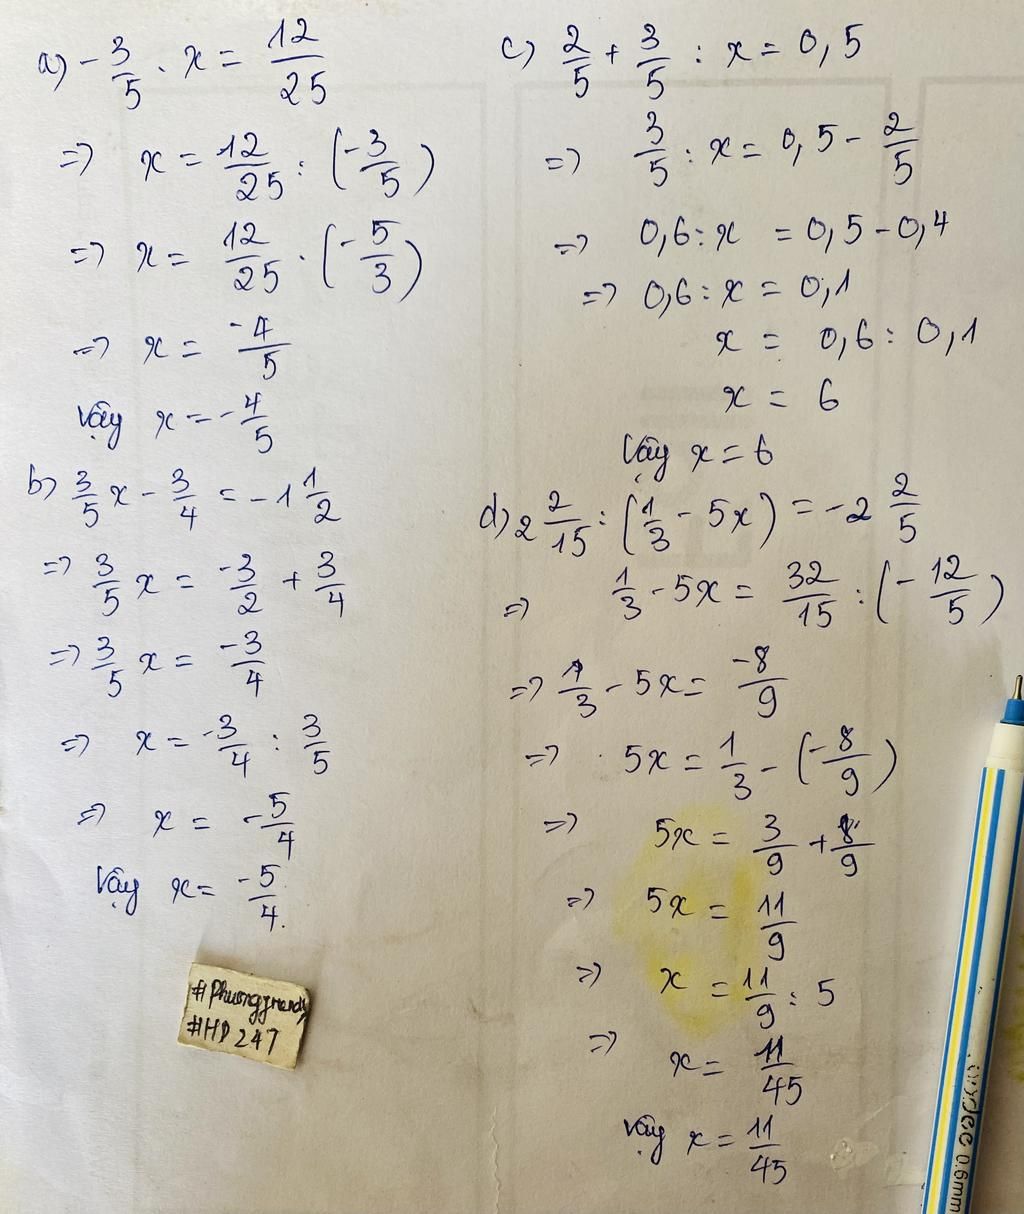 a) -3/5 . x = 12/25
=> x = 12/25 : (-3/5)
=> x = 12/25 . (-5/3)
=> x = -4/5
Vậy x = -4/5
b) 3/5 x - 3/4 = -1 1/2
=> 3/5 x = -3/2 + 3/4
=> 3/5 x = -3/4
=> x = -3/4 : 3/5
=> x = -5/4
Vậy x = -5/4.
#HD247
c) 2/5 + 3/5 : x = 0,5
=> 3/5 : x = 0,5 - 2/5
=> 0,6 : x = 0,5 - 0,4
=> 0,6 : x = 0,1
x = 0,6 : 0,1
x = 6
Vậy x = 6
d) 2 2/15 : (1/3 - 5x) = -2 2/5
=> 1/3 - 5x = 32/15 : (-12/5)
=> 1/3 - 5x = -8/9
=> 5x = 1/3 - (-8/9)
=> 5x = 3/9 + 8/9
=> 5x = 11/9
=> x = 11/9 : 5
=> x = 11/45
Vậy x = 11/45
0.6mm